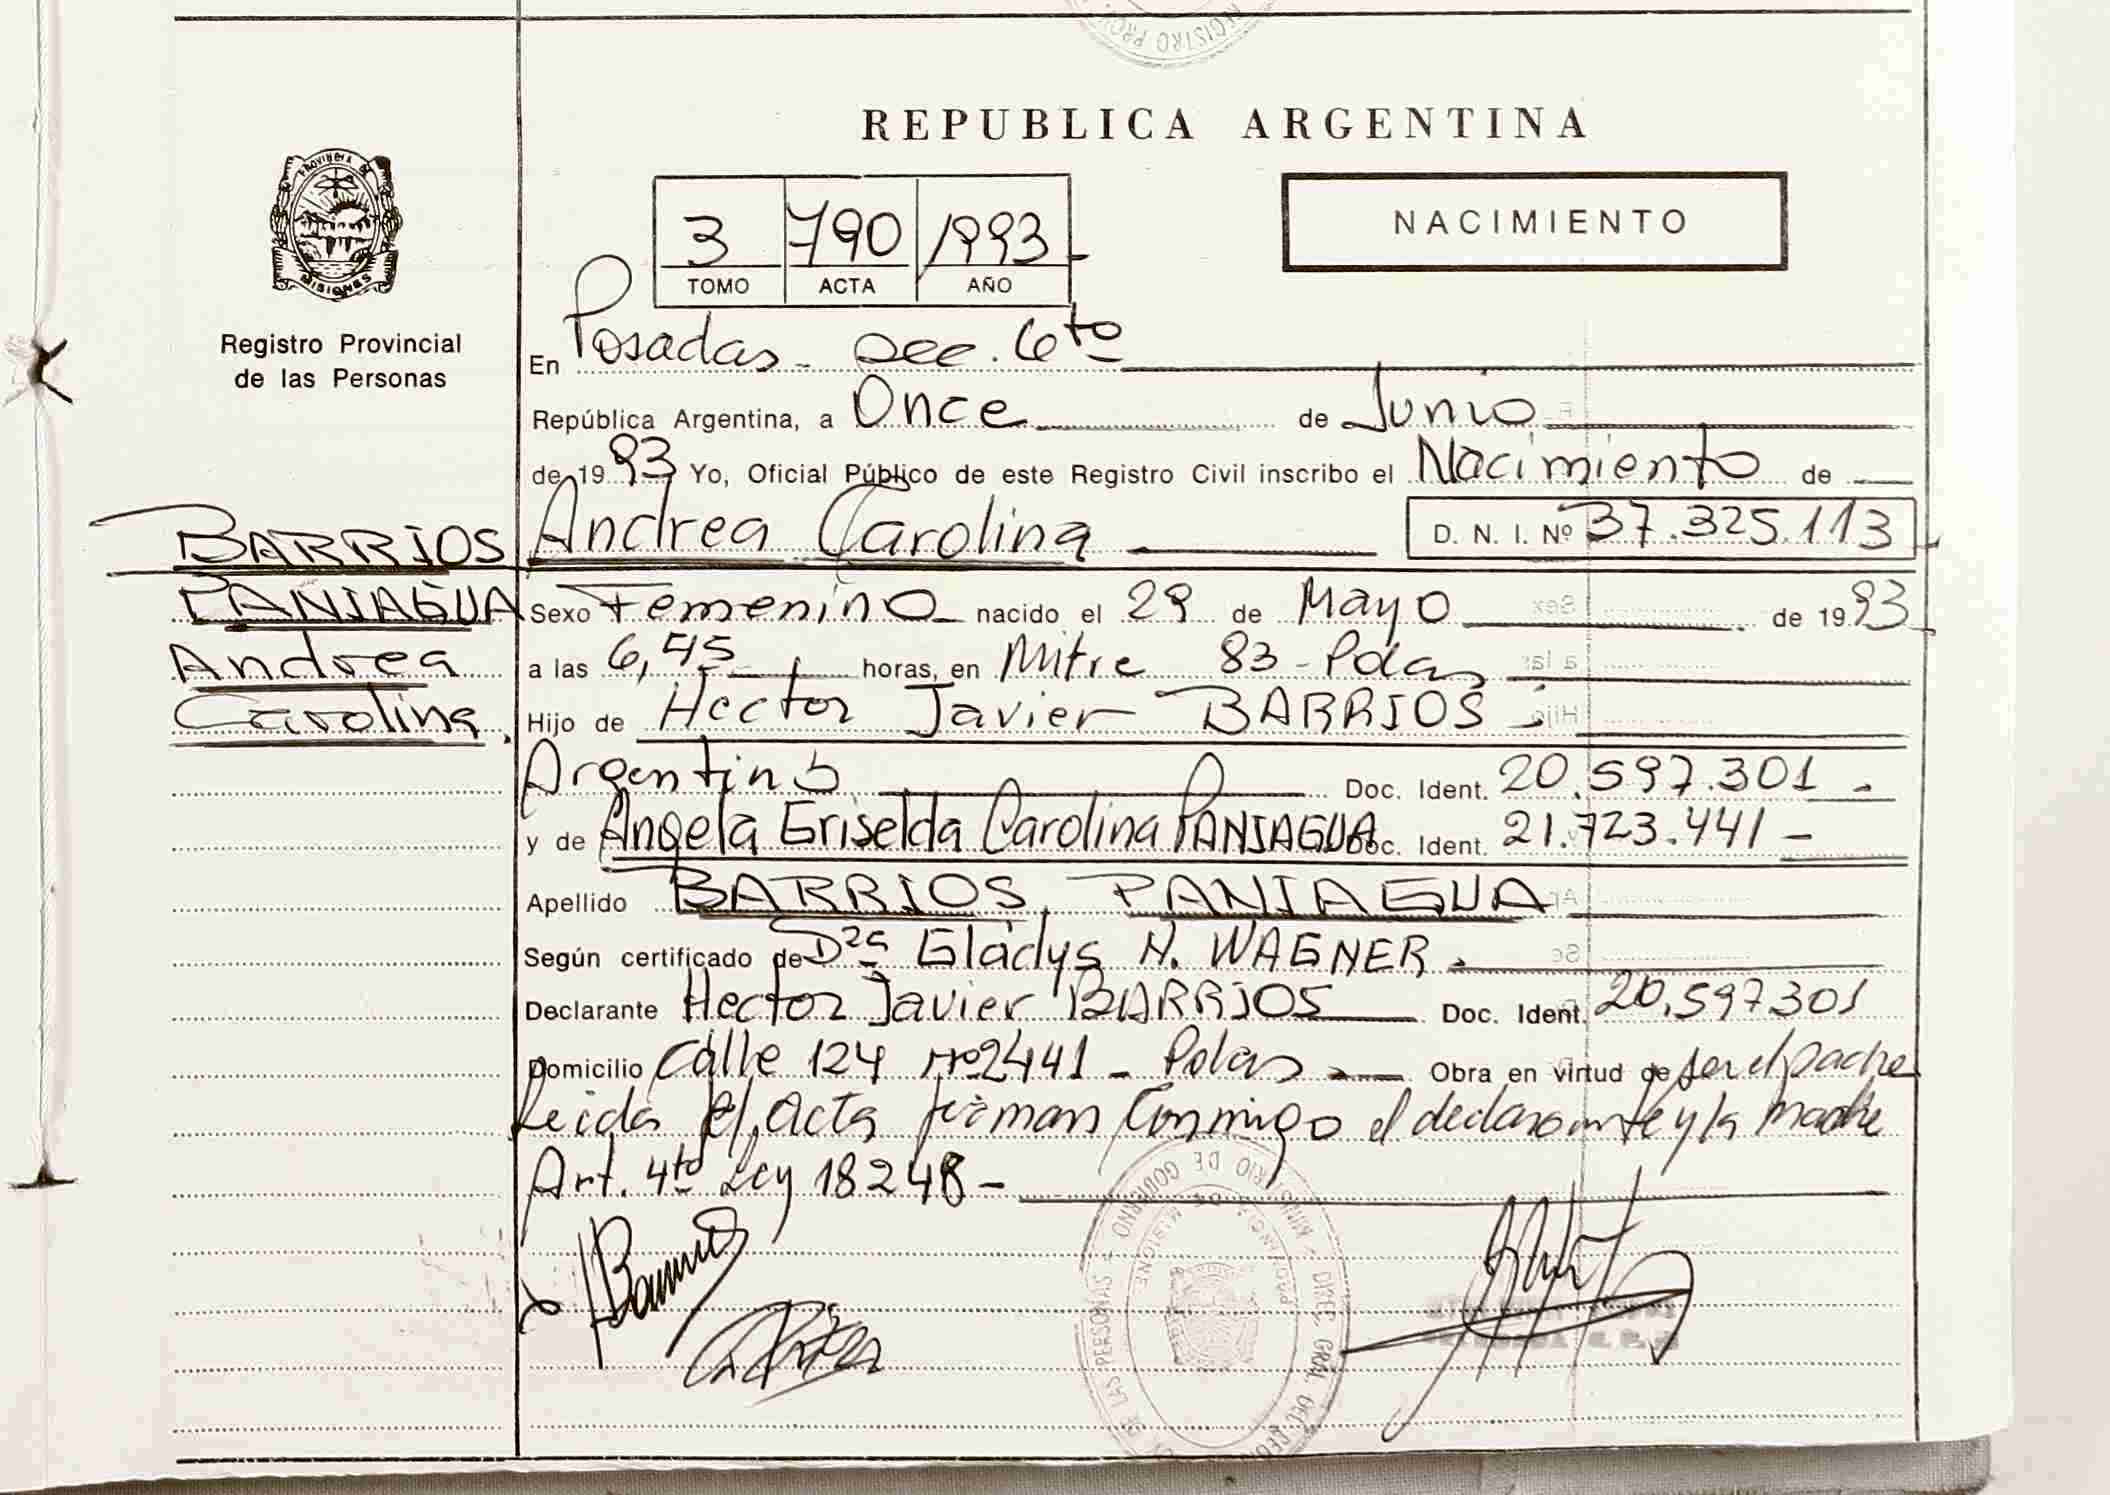 REPUBLICA ARGENTINA
PROVINCIA DE
MISIONES
Registro Provincial
de las Personas
3 790 1993
TOMO ACTA AÑO
NACIMIENTO
En Posadas - sec. 6to
República Argentina, a Once de Junio
de 1993 Yo, Oficial Público de este Registro Civil inscribo el Nacimiento de
Andrea Carolina D. N. I. Nº 37.325.113
BARRIOS
PANIAGUA
Andrea
Carolina
Sexo Femenino nacido el 29 de Mayo de 1993
a las 6,45 horas, en Mitre 83 - Pdas
Hijo de Hector Javier BARRIOS
Argentino Doc. Ident. 20.597.301 -
y de Angela Griselda Carolina PANIAGUA Doc. Ident. 21.723.441 -
Apellido BARRIOS PANIAGUA
Según certificado de Dra Gladys N. WAGNER
Declarante Hector Javier BARRIOS Doc. Ident. 20.597.301
Domicilio Calle 124 Nº 2441 - Pdas Obra en virtud de ser el padre
Leida el acta firman conmigo el declarante y la madre
Art. 4to Ley 18248 -
MINISTERIO DE GOBIERNO